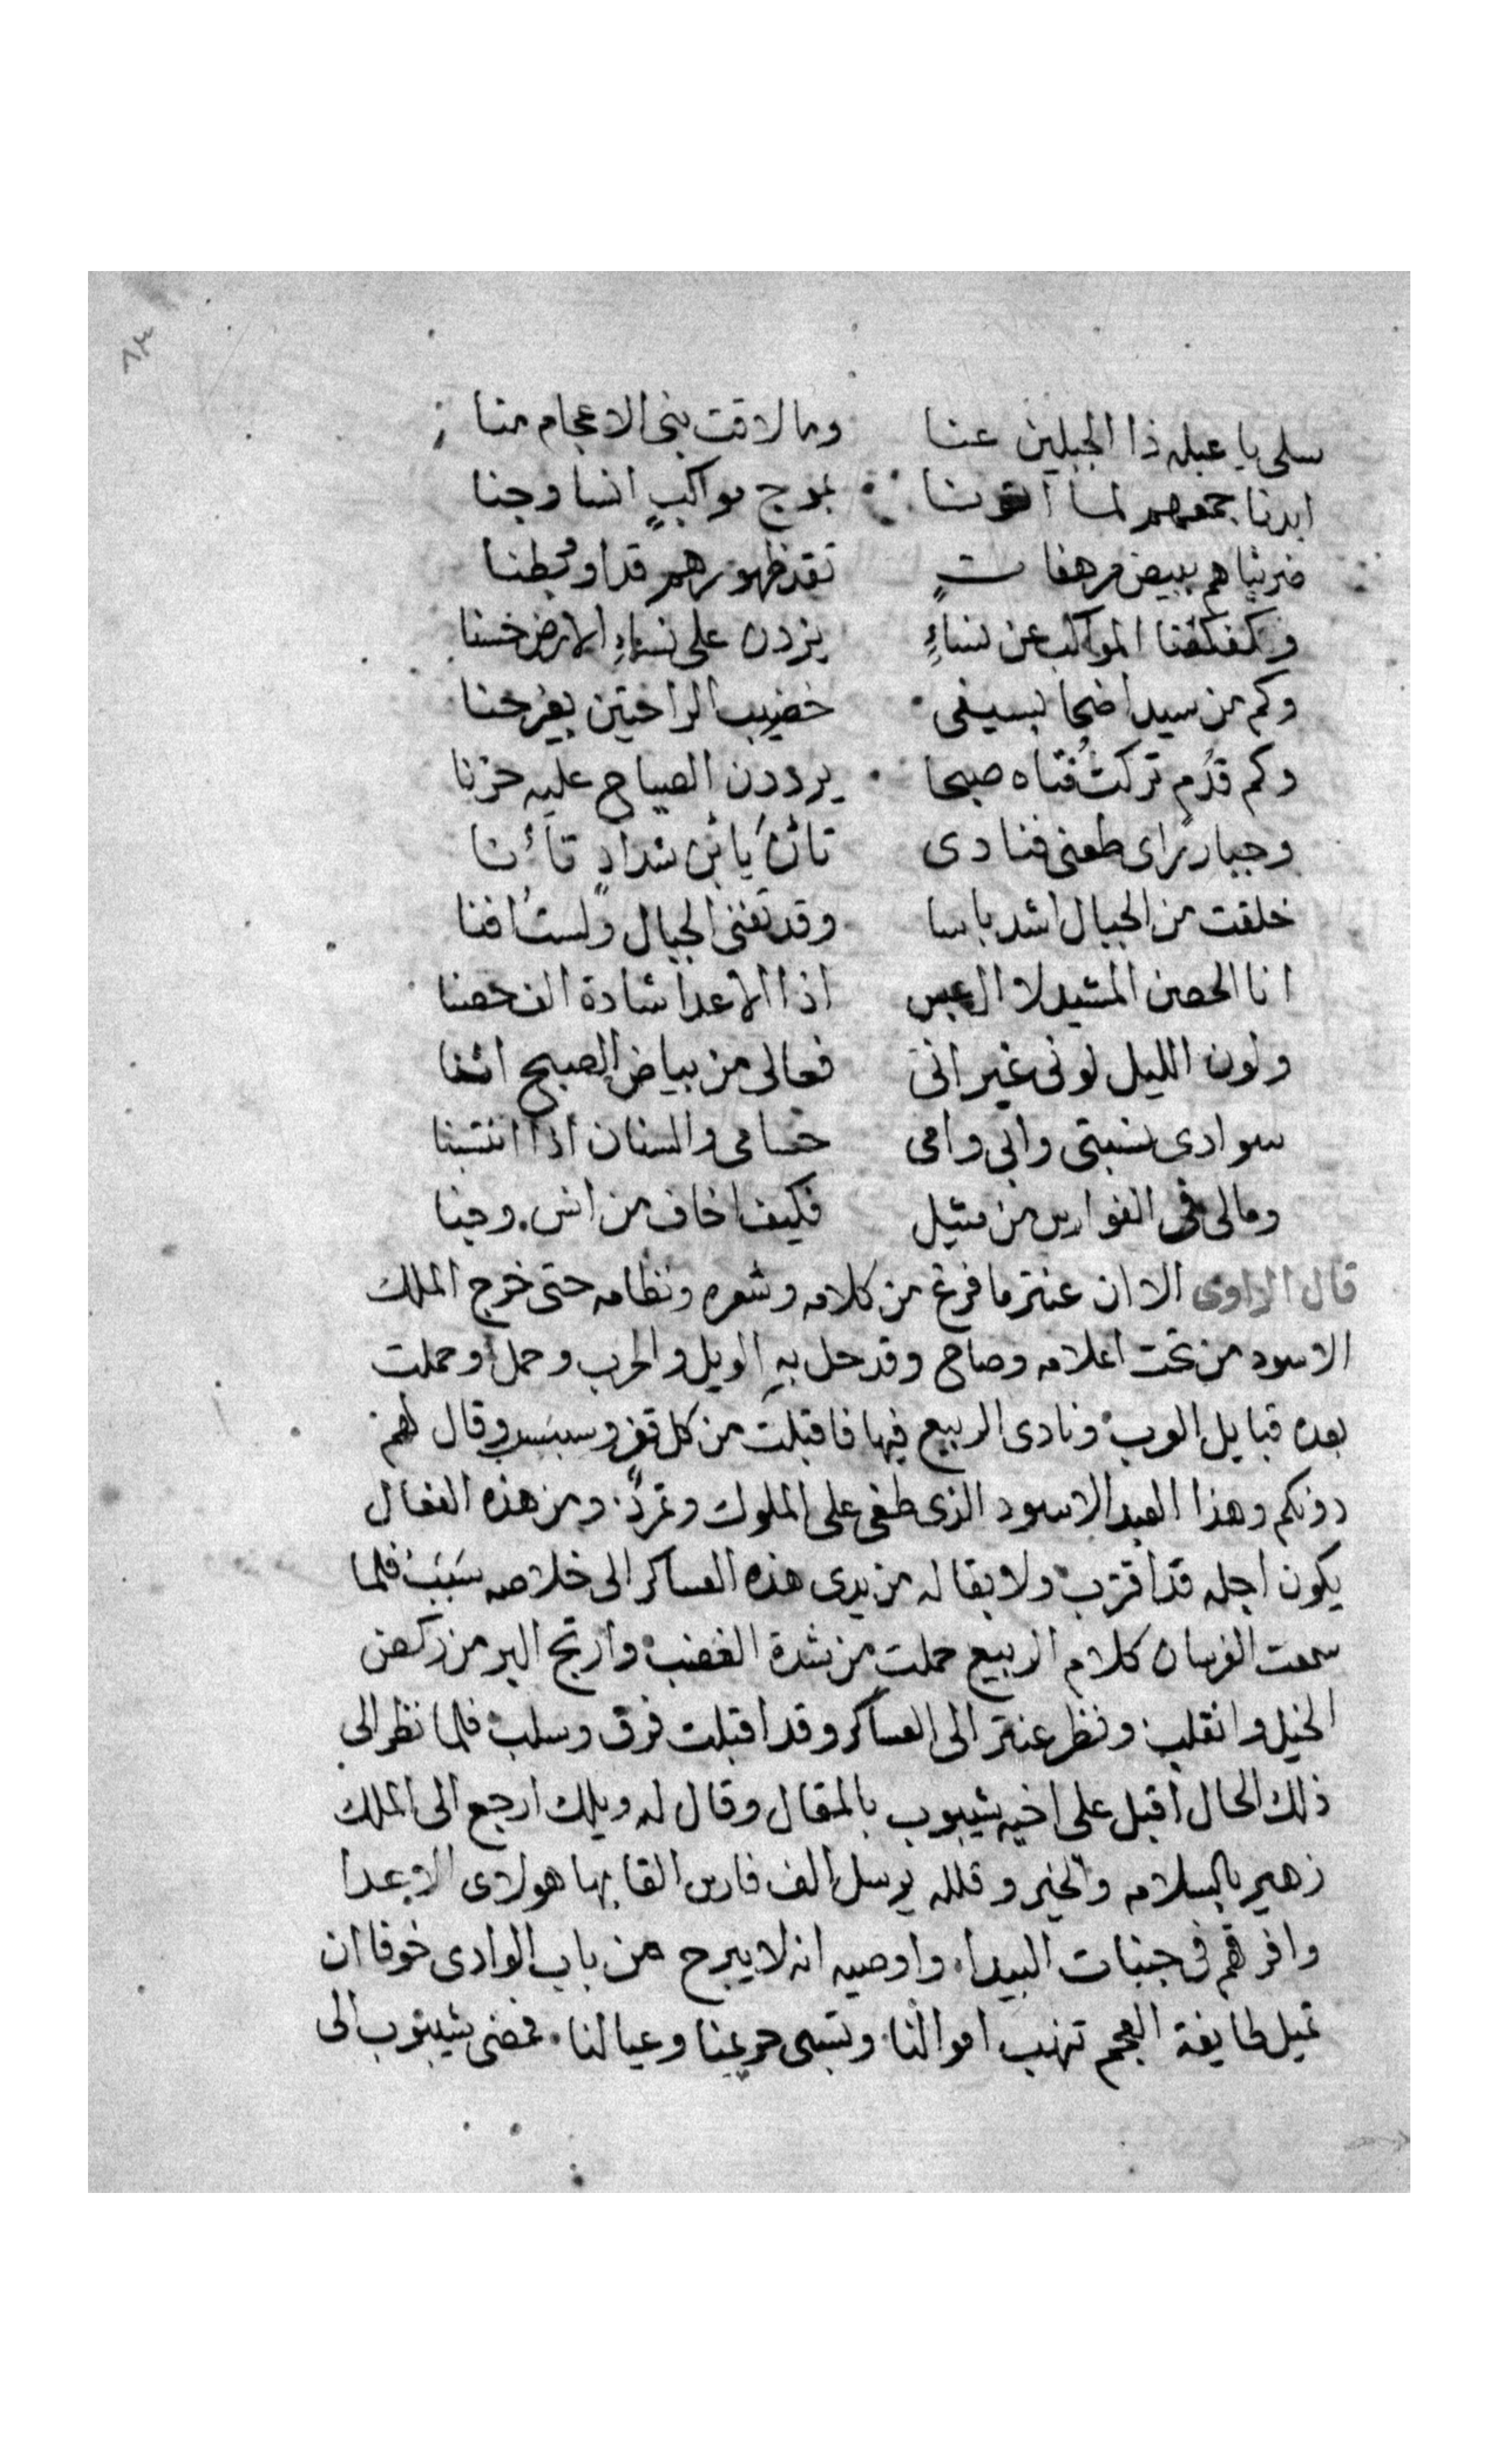 ٨٣
سلى يا عبله ذا الجبلين عنا وما لاقت بنى الاعجام منا
ابدنا جمعهم لما اتونا بموج مواكبٍ انسا وجنا
ضربناهم ببيض مرهفاتٍ تقد ظهورهم قدا وبطنا
وكفكفنا المواكب عن نساءٍ يزدن على نساءِ الارض حسنا
وكم من سيد اضحا بسيفى خضيب الراحتين بغير حنا
وكم قدُم تركتُ فتاه صبحا يرددن الصياح عليه حزنا
وجبار راى طعنى فنادى تان يا بن شدادٍ تانا
خلقت من الجبال اشد باسا وقد تفنى الجبال ولستُ افنا
انا الحصن المشيد لال عبس اذا الاعدا شادة الف حصنا
ولون الليل لونى غير انى فعالى من بياض الصبح اسنا
سوادى نسبتى وابى وامى حسامى والسنان اذا انتسبنا
ومالى فى الفوارس من مثيل فكيف اخاف من انس وجنا
قال الراوى الا ان عنتر ما فرغ من كلامه وشعره ونظامه حتى خرج الملك
الاسود من تحت اعلامه وصاح وقد حل بهِ الويل والحرب وحمل وحملت
بعده قبايل العرب ونادى الربيع فيها فاقبلت من كل قفر وسبسب وقال لهم
دونكم وهذا العبد الاسود الذى طغى على الملوك وتمردّ ومن هذه الفعال
يكون اجله قد اقترب ولا بقا له من يدى هذه العساكر الى خلاصه سَبَبُ فلما
سمعت الفرسان كلام الربيع حملت من شدة الغضب وارتج البر من ركض
الخيل وانقلب ونظر عنتر الى العساكر وقد اقبلت فرق وسلب فلما نظر الى
ذلك الحال اقبل على اخيه شيبوب بالمقال وقال له ويلك ارجع الى الملك
زهير بالسلامه والخير وقلله يرسل الف فارس القا بها هولاى الاعدا
وافرقهم فى جنبات البيدا، واوصيه انه لا يبرح من باب الوادى خوفا ان
تميل طايفة العجم تنهب اموالنا وتسبى حريمنا وعيالنا. فمضى شيبوب الى